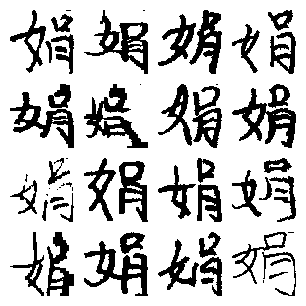 娟娟娟娟
娟娟娟娟
娟娟娟娟
娟娟娟娟